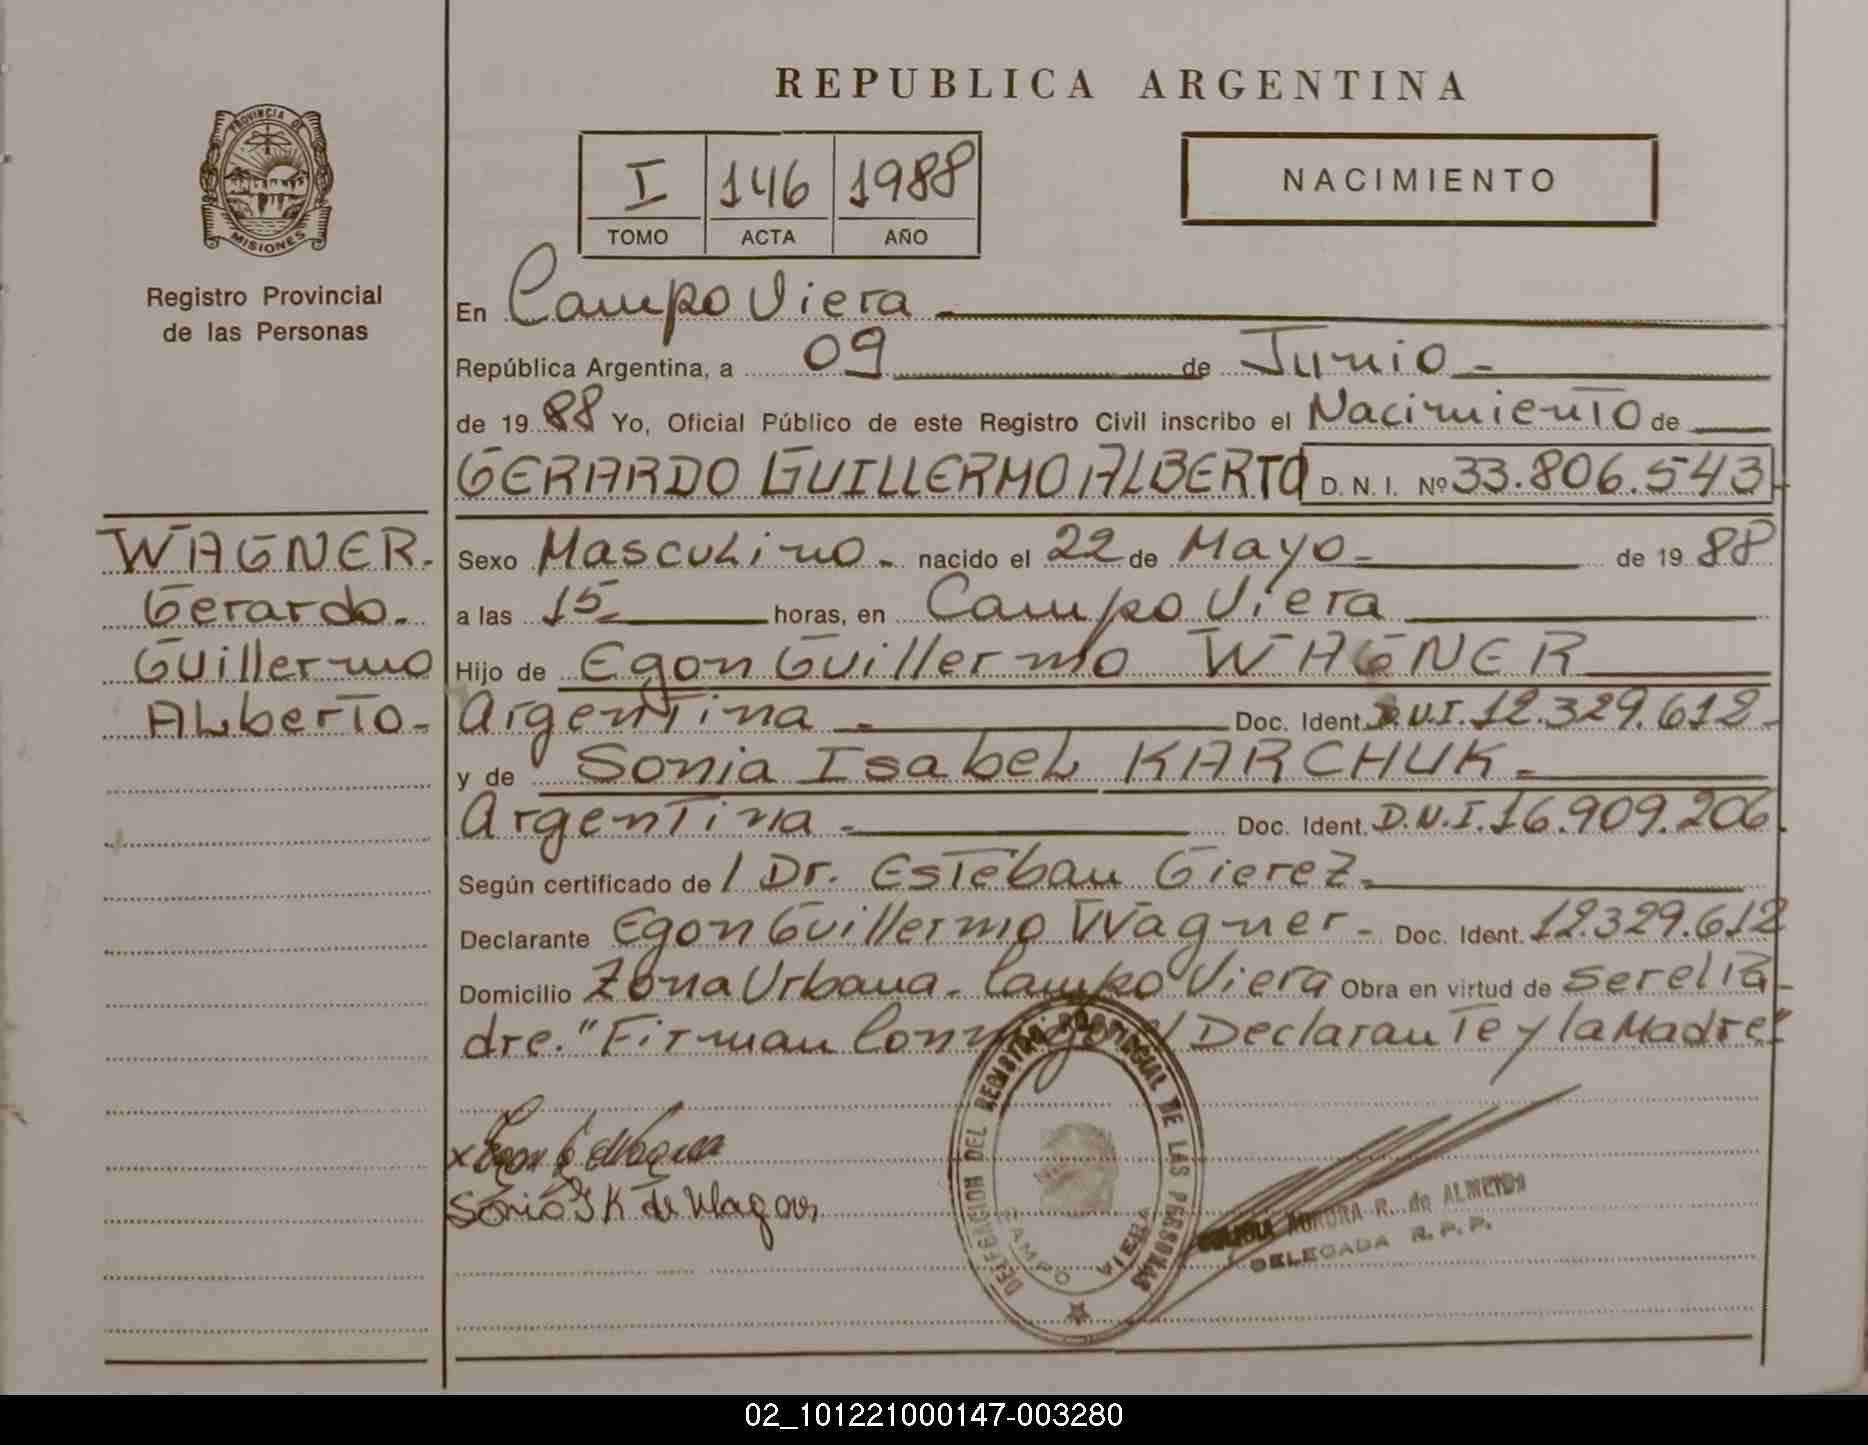 REPUBLICA ARGENTINA
PROVINCIA DE
MISIONES
Registro Provincial
de las Personas
I 146 1988
TOMO ACTA AÑO
NACIMIENTO
En Campo Viera
República Argentina, a 09 de Junio
de 1988 Yo, Oficial Público de este Registro Civil inscribo el Nacimiento de
GERARDO GUILLERMO ALBERTO D. N. I. Nº 33.806.543
WAGNER.
Gerardo.
Guillermo
ALberto-
Sexo Masculino. nacido el 22 de Mayo de 1988
a las 15 horas, en Campo Viera
Hijo de Egon Guillermo WAGNER
Argentina Doc. Ident. D.N.I. 12.329.612
y de Sonia Isabel KARCHUK
Argentina Doc. Ident. D.N.I. 16.909.206.
Según certificado de / Dr. Esteban Gierez.
Declarante Egon Guillermo Wagner - Doc. Ident. 12.329.612
Domicilio Zona Urbana. Campo Viera Obra en virtud de ser el Pa-
dre." Firman Conmigo el Declarante y la Madre"
x Egon G Wagner
Sonia I K de Wagner
DELEGACION DEL REGISTRO PROVINCIAL DE LAS PERSONAS
CAMPO VIERA
AURORA R. de ALMEIDA
DELEGADA R. P. P.
02_101221000147-003280